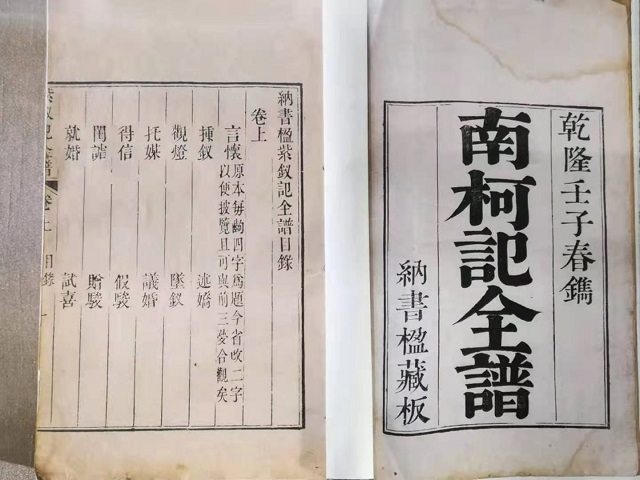 乾隆壬子春鐫
南柯記全譜
納書楹藏板
納書楹紫釵記全譜目錄
卷上
言懷 原本每齣四字爲題今省收二字
以便披覽且可與前三夢合觀矣
插釵 述嬌
觀燈 墜釵
托媒 議婚
得信 假駿
閨謔 贈駿
就婚 試喜
紫釵記全譜 卷上 目錄 一